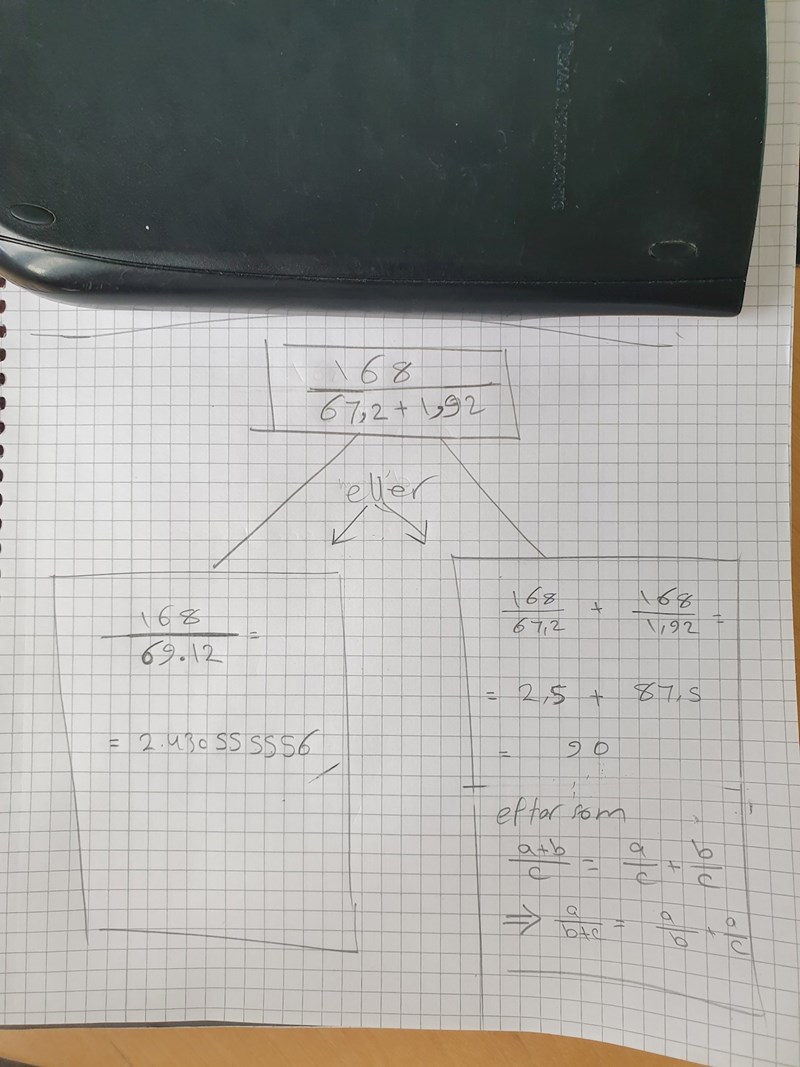 168
67,2 + 1,92
eller
168
69.12 =
= 2.430555556
168/67,2 + 168/1,92 =
= 2,5 + 87,5
= 90
eftorsom
a+b/c = a/c + b/c
⇒ a/b+c = a/b + a/c